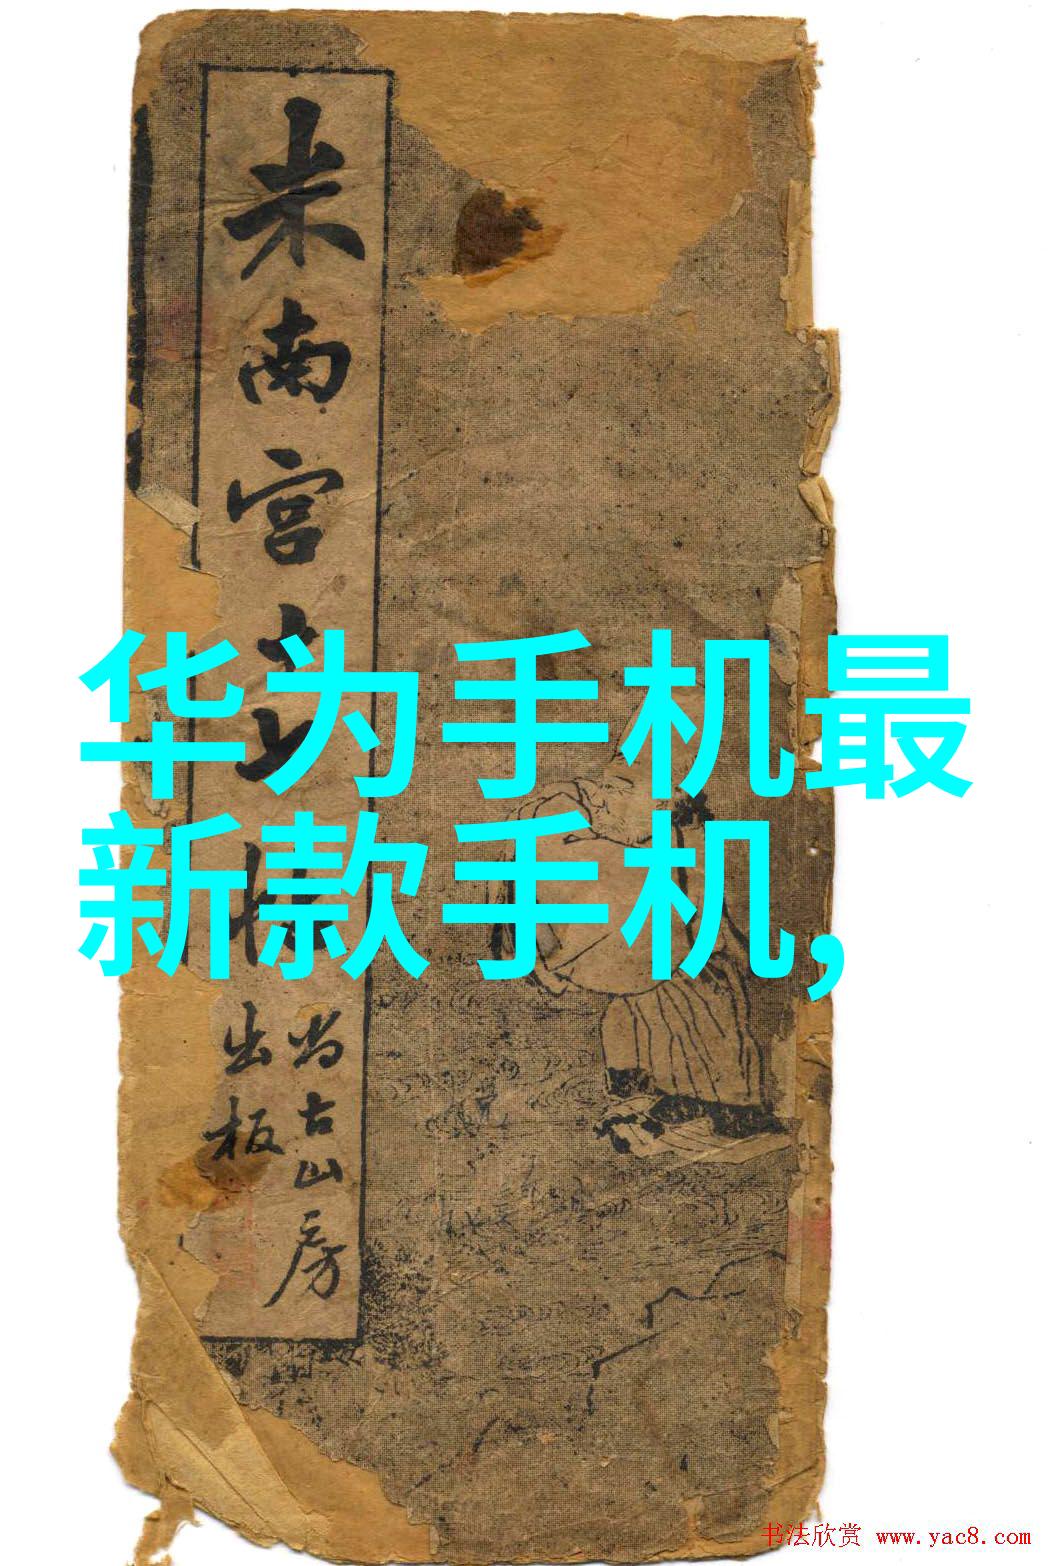 米南宫十七帖
尚古山房
出板
华为手机最
新款手机,
书法欣赏 www.yac8.com